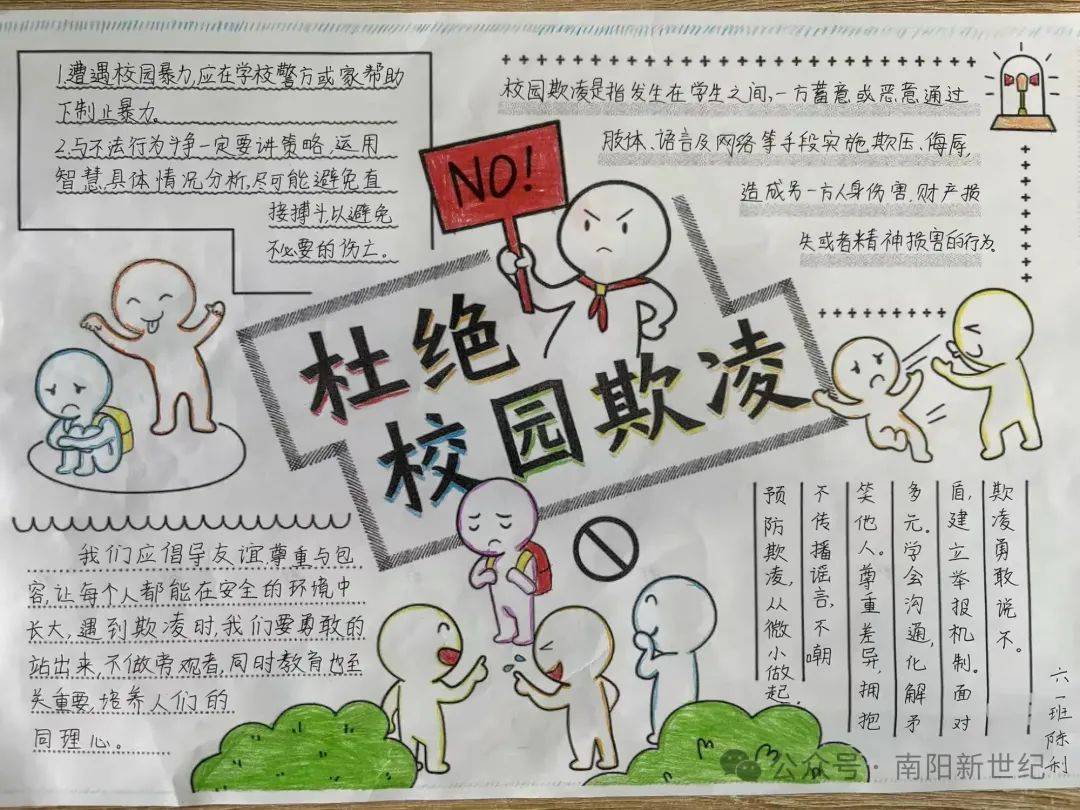 1.遭遇校园暴力,应在学校警方或家帮助
下制止暴力。
2.与不法行为斗争一定要讲策略,运用
智慧,具体情况分析,尽可能避免直
接搏斗,以避免
不必要的伤亡。
NO!
校园欺凌是指发生在学生之间,一方蓄意或恶意通过
肢体、语言及网络等手段实施欺压、侮辱,
造成另一方人身伤害,财产损
失或者精神损害的行为。
杜绝
校园欺凌
我们应倡导友谊,尊重与包
容,让每个人都能在安全的环境中
长大,遇到欺凌时,我们要勇敢的
站出来,不做旁观者,同时教育也至
关重要,培养人们的
同理心。
预防欺凌,从微小做起.
不传播谣言,不嘲
笑他人。尊重差异,拥抱
多元。学会沟通,化解矛
盾,建立举报机制。面对
欺凌勇敢说不。
六一班陈利
公众号·南阳新世纪